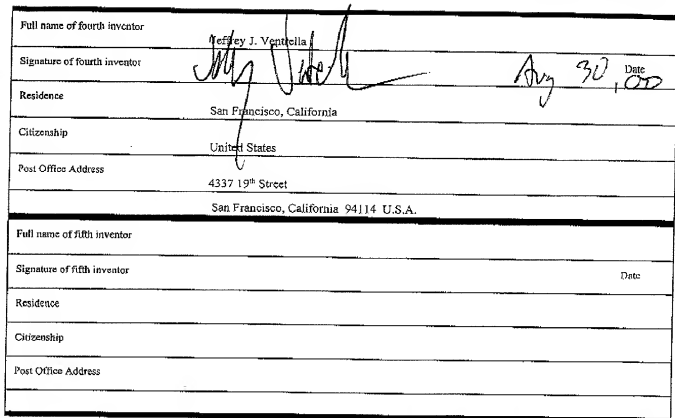 Full name of fourth inventor
Jeffrey J. Ventrella
Signature of fourth inventor Aug 30, 00 Date
Residence
San Francisco, California
Citizenship
United States
Post Office Address
4337 19th Street
San Francisco, California 94114 U.S.A.
Full name of fifth inventor
Signature of fifth inventor Date
Residence
Citizenship
Post Office Address